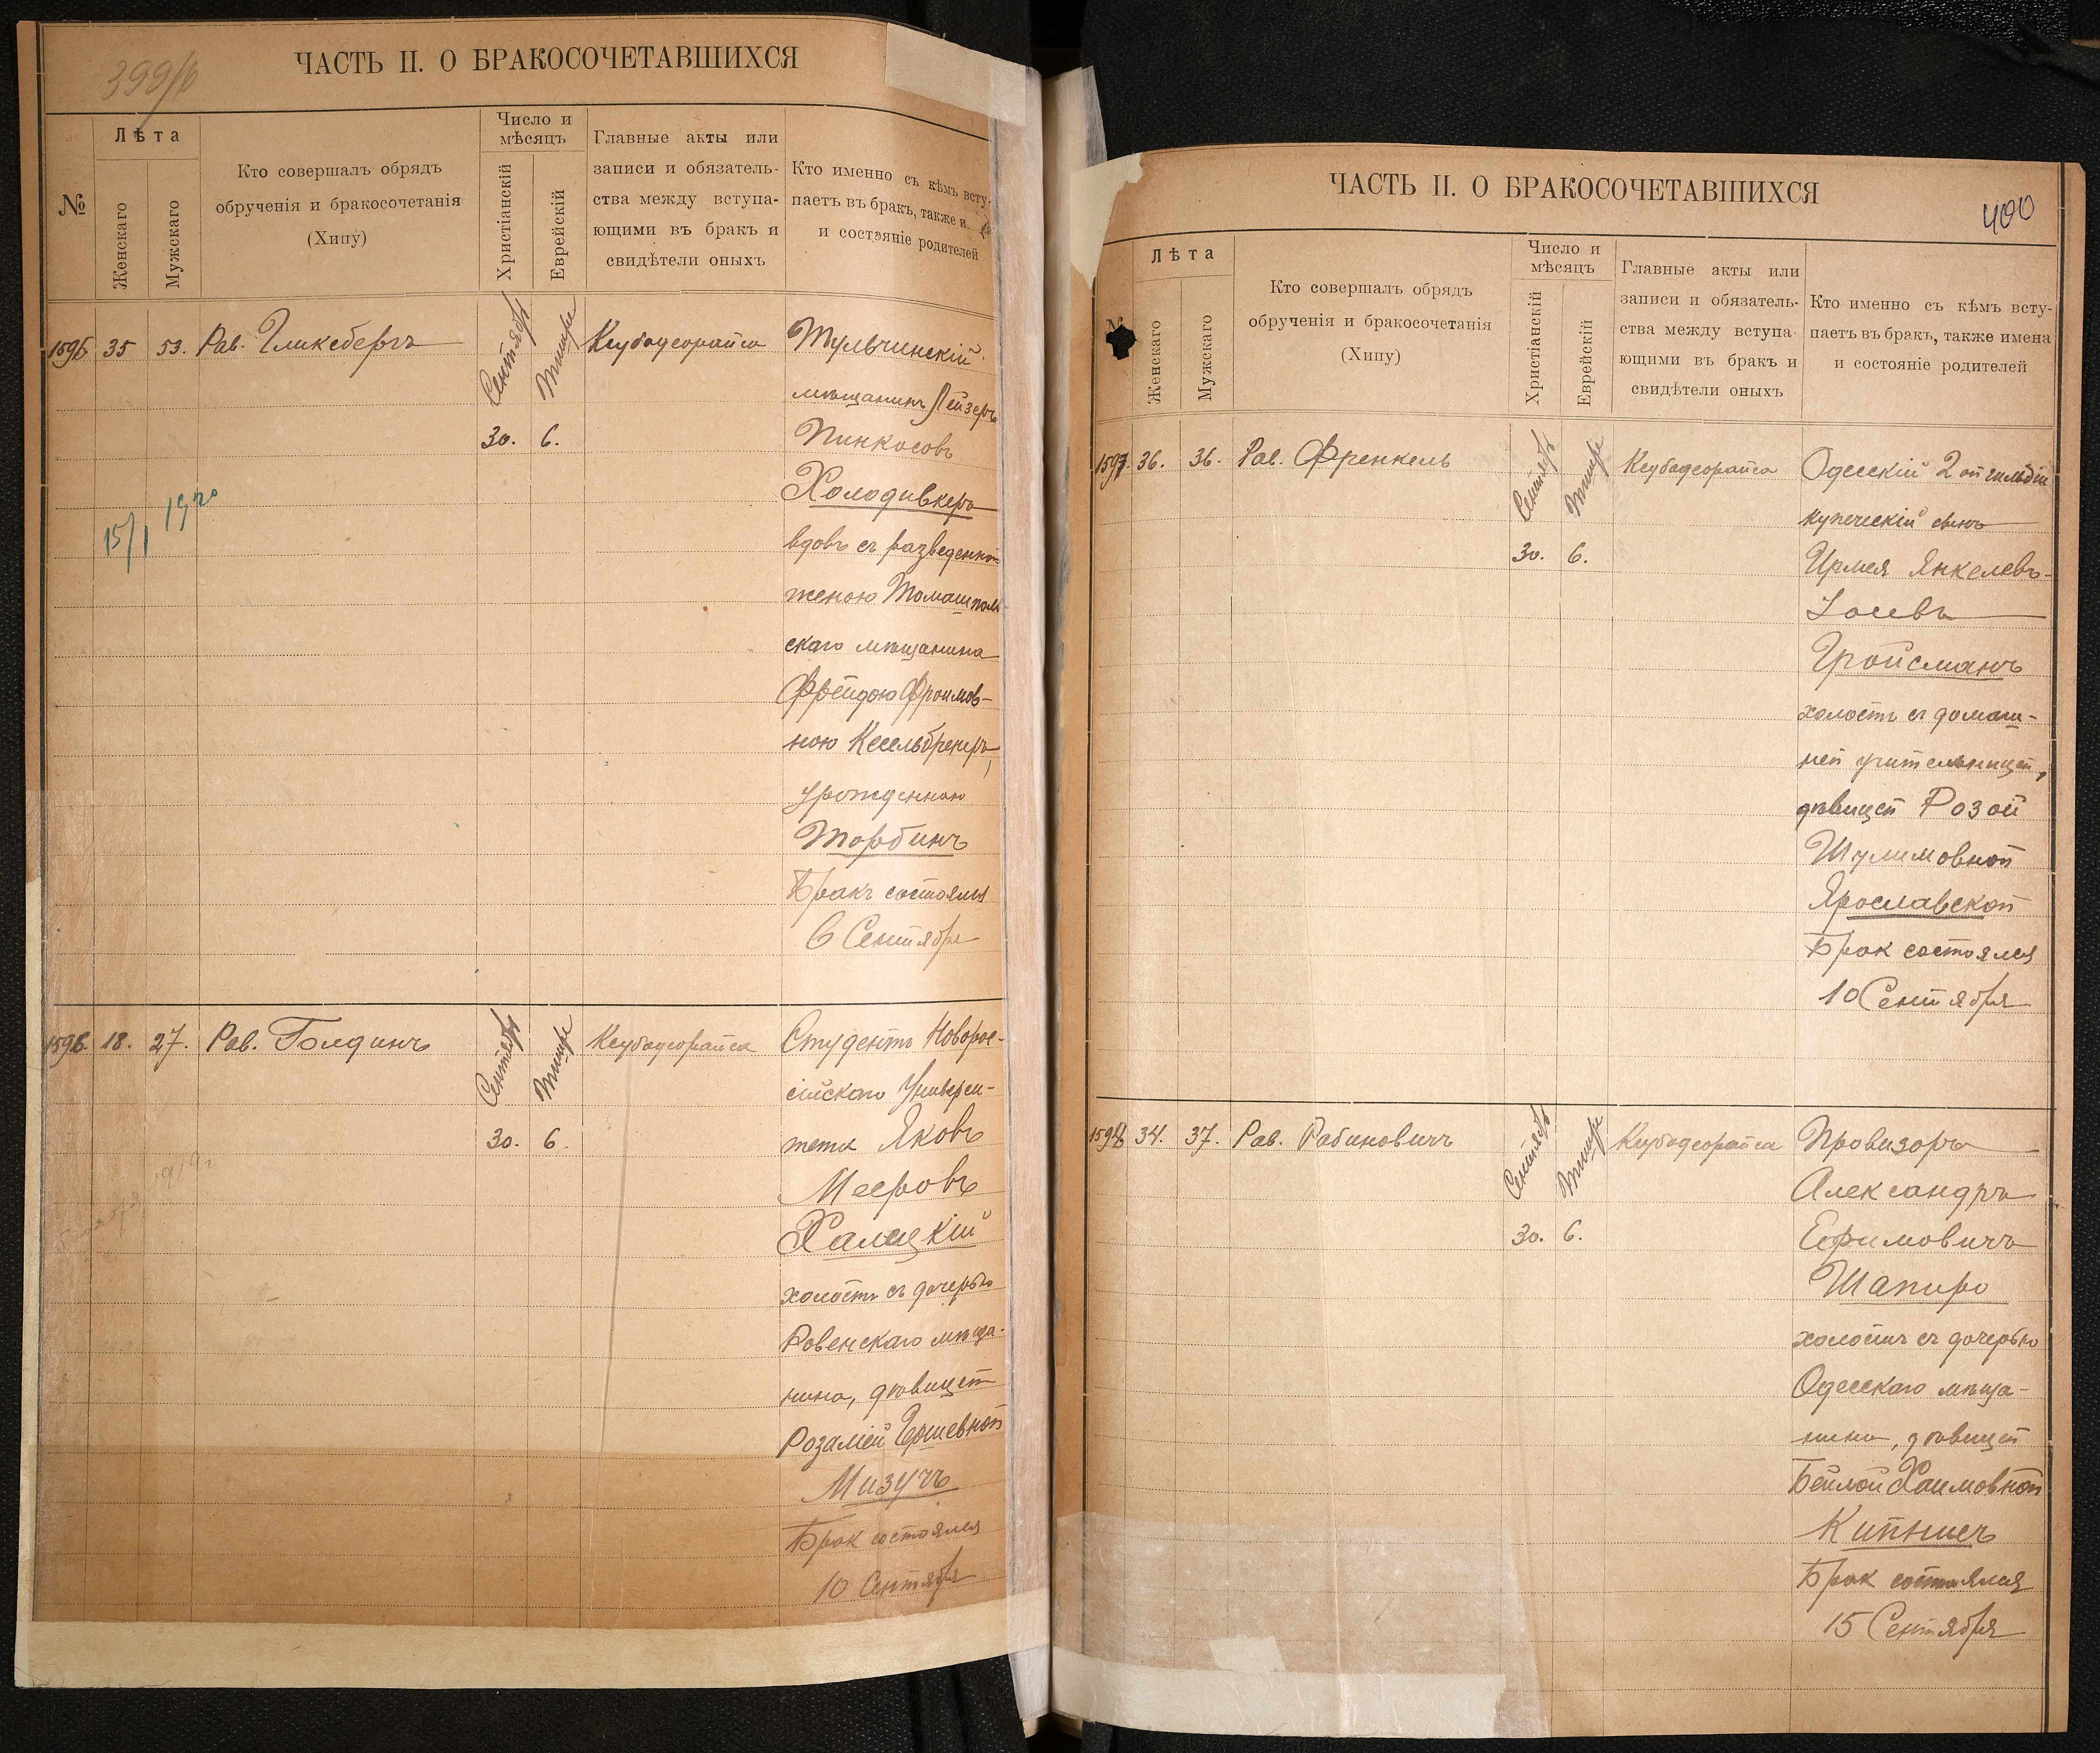 399/б
ЧАСТЬ II. О БРАКОСОЧЕТАВШИХСЯ
№
Лѣта
Женскаго
Мужскаго
Кто совершалъ обрядъ
обрученія и бракосочетанія
(Хипу)
Число и
мѣсяцъ
Христіанскій
Еврейскій
Главные акты или
записи и обязатель-
ства между вступа-
ющими въ бракъ и
свидѣтели оныхъ
Кто именно съ кѣмъ всту-
паетъ въ бракъ, также и
и состояніе родителей
1595 35 53. Рав. Гликсбергъ
Сентябрь Тишре
30. 6.
Кеубадеорайса
Тульчинскій
мѣщанинъ Лейзеръ
Пинкосовъ
Холодивкеръ
вдовъ съ разведенной
женою Томашполь
скаго мѣщанина
Фрейдою Фроимов-
ною Кесельбренеръ,
урожденною
Торбинъ
Бракъ состоялся
6 Сентября
15/I 1920
1596. 18. 27. Рав. Голдинъ
Сентябрь Тишре
30. 6.
Кеубадеорайса
Студентъ Новорос-
сійскаго Универси-
тета Яковъ
Мееровъ
Халецкій
холостъ съ дочерью
Ровенскаго мѣща-
нина, дѣвицей
Розаліей Гершевной
Мизучъ
Брак состоялся
10 Сентября
ЧАСТЬ II. О БРАКОСОЧЕТАВШИХСЯ
400
Лѣта
Женскаго
Мужскаго
Кто совершалъ обрядъ
обрученія и бракосочетанія
(Хипу)
Число и
мѣсяцъ
Христіанскій
Еврейскій
Главные акты или
записи и обязатель-
ства между вступа-
ющими въ бракъ и
свидѣтели оныхъ
Кто именно съ кѣмъ всту-
паетъ въ бракъ, также имена
и состояніе родителей
1597. 36. 36. Рав. Френкель
Сентябрь Тишре
30. 6.
Кеубадеорайса
Одесскій 2ой гильдіи
купеческій сынъ
Ирмея Янкелевъ-
Іосевъ
Гройсманъ
холостъ съ домаш-
ней учительницей,
дѣвицей Розой
Шулимовной
Ярославской
Брак состоялся
10 Сентября
1598 34. 37. Рав. Рабиновичъ
Сентябрь Тишре
30. 6.
Кеубадеорайса
Провизоръ
Александръ
Ефимовичъ
Шапиро
холостъ съ дочерью
Одесскаго мѣща-
нина, дѣвицей
Бейлой Хаимовной
Кипнисъ
Брак состоялся
15 Сентября